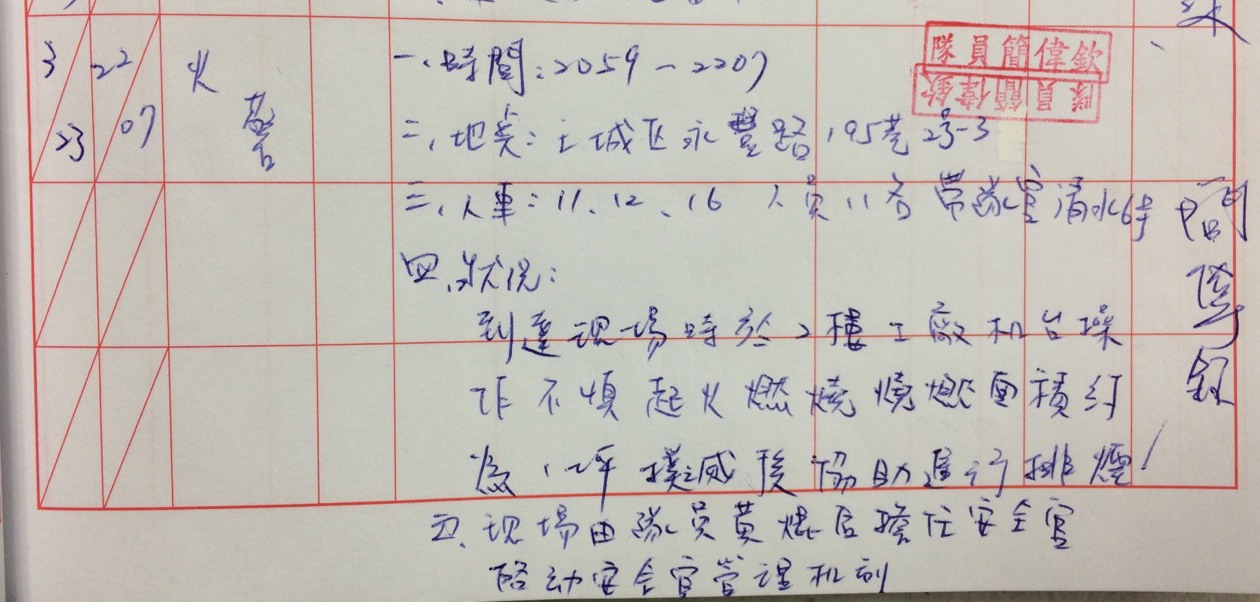 3 22
23 07
火警
一、時間：2059－2207
隊員簡偉欽
隊員簡偉欽
二、地點：土城区永豐路195巷2号-3
三、人車：11、12、16 人員11名 帶隊官清水
簡偉欽
四、狀況：
到達現場時於2樓工廠机台操
作不慎起火燃燒燒燃面積約
為1坪撲滅後協助進行排煙
五、現場由隊員黃焜后擔任安全官
啓动安全官管理机制